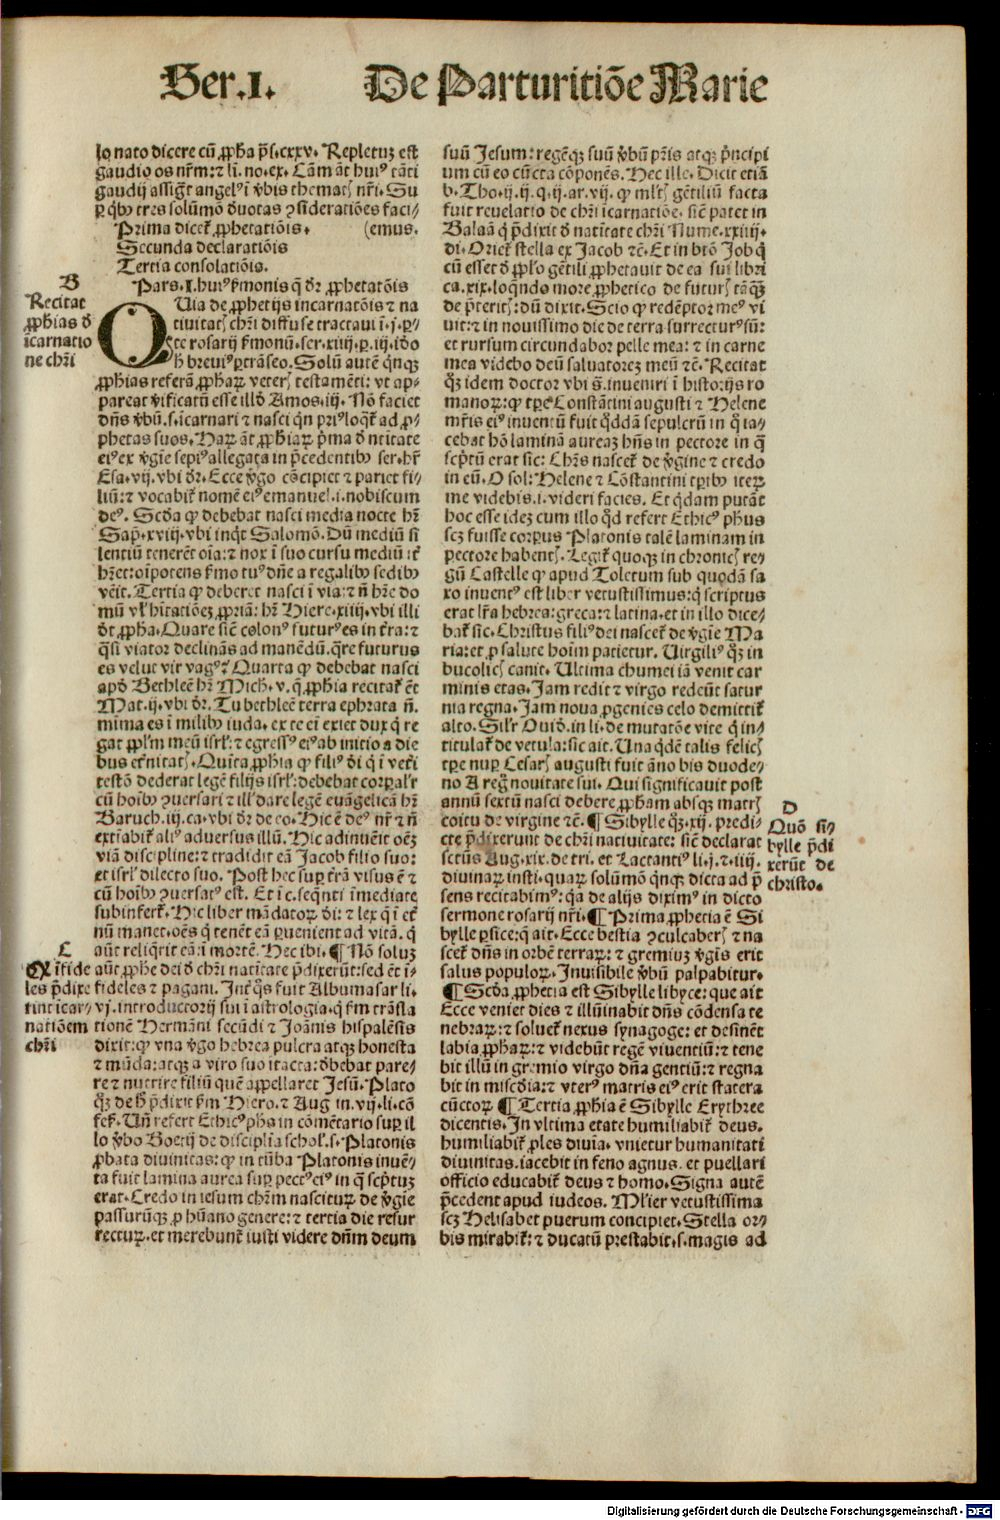 Ser.I. De Parturitiõe Marie
lo nato dicere cũ ꝓpha p̃s.cxxv. Repletuʒ est
gaudio os nr̃m: ⁊ li. no. ex. Cãm ãt huiꝰ tãti
gaudij assigt angelꝰ ĩ v̾bis thematꝭ nr̃i. Su
ꝑ qĩbꝰ tres solũmõ deuotas ꝯsideratiões faci-
Prima dicet̃ ꝓphetatiõis. (emus.
Secunda declaratiõis
Tertia consolatiõis.
Pars.I. huiꝰ s̾monis q̃ dr̃ ꝓphetatõis
B
Recitat
ꝓphias d̾
ĩcarnatio
ne chr̃i
QVia de ꝓphetijs incarnatõis ⁊ na
tiuitatꝭ chr̃i diffuse tractaui ĩ .j. ꝑ-
te rosarij s̾monũ. ser. xiiij. ꝑ. iij. iđo
h̾ breuiꝰ ꝑtrãseo. Solũ autẽ q̃nqꝫ
ꝓphias referã ꝓphaꝝ veterꝭ testamẽti: vt ap-
pareat v̾ificatũ esse illđ Amos. iij. Nõ faciet
dñs v̾bũ. s. icarnari ⁊ nasci q̃n priꝰ loqt̃ ad ꝓ-
phetas suos. Haꝝ ãt ꝓphiaꝝ p̃ma đ nt̃itate
eiꝰ ex v̾gie sepiꝰ allegata in p̃cedentibꝰ ser. hr̃
Esa. vij. vbi dr̃. Ecce v̾go cõcipiet ⁊ pariet fi-
liũ: ⁊ vocabit̃ nomẽ eiꝰ emanuel. i. nobiscum
deꝰ. Scđa ꝙ debebat nasci media nocte hr̃
Sap̃. xviij. vbi inqt̃ Salomõ. Dũ mediũ si
lentiũ tenerẽt oĩa: ⁊ nox ĩ suo cursu mediũ it̃
hr̃et: oĩpotens s̾mo tuꝰ dñe a regalibꝰ sedibꝰ
vẽit. Tertia ꝙ deberet nasci ĩ via: ⁊ ñ hr̃e do
mũ vl̾ hĩtatiõeʒ ꝓpriã: hr̃ Hiere. xiiij. vbi illi
đt ꝓpha. Quare sic̃ colonꝰ futurꝰ es in t̾ra: ⁊
q̃si viator declinãs ad manẽdũ. q̃re futurus
es velut vir vagꝰ? Quarta ꝙ debebat nasci
apđ Bethleẽ hr̃ Mich. v. q̃ ꝓphia recitat̃ ẽt
Mat. ij. vbi dr̃. Tu bethleẽ terra ephrata ñ.
minima es ĩ milibꝰ iuda. ex te ei exiet dux q̃ re
gat ꝓpl̾m meũ isrl̾: ⁊ egressꝰ eiꝰ ab initio a die
bus et̾nitatꝭ. Quĩta ꝓphia ꝙ filiꝰ đi q̃ ĩ vet̾i
testõ dederat legẽ filijs isrl̾: debebat corꝑalr̃
cũ hoĩbꝰ ꝯuersari ⁊ ill̾ dare legẽ euãgelicã hr̃
Baruch. iij. ca. vbi dr̃ de eo. Hic ẽ deꝰ nr̃ ⁊ ñ
extĩabit̃ aliꝰ aduersus illũ. Hic adinuẽit oẽʒ
viã discipline: ⁊ tradidit eã Jacob filio suo:
et isrl̾ dilecto suo. Post hec suꝑ t̾rã visus ẽ ⁊
cũ hoĩbꝰ ꝯuersatꝰ est. Et ĩ c. seq̃nti ĩmediate
subinfert̃. Hic liber mãdatoꝝ đi: ⁊ lex q̃ ĩ et̾
nũ manet. oẽs q̃ tenẽt eã ꝑuenient ad vitã. q̃
C
Qĩ ĩfide
les p̃dixe
rũt icar-
natiõem
chr̃i
aũt reliq̃rit eã: ĩ mortẽ. Hec ibi. ¶ Nõ soluʒ
aũt ꝓphe dei đ chr̃i natĩtate p̃dixerũt: sed ẽt i-
fideles ⁊ pagani. Int̾ q̃s fuit Albumasar li.
vj. introductorij sui ĩ astrologia. q̃ s̾m trãsla
tionẽ Hermãni secũdi ⁊ Joãnis hispalẽsis
dixit: ꝙ vna v̾go hebrea pulcra atqꝫ honesta
⁊ mũda: atqꝫ a viro suo itacta: đbebat pare-
re ⁊ nutrire filiũ quẽ appellaret Jesũ. Plato
q̃ʒ de h̾ p̃dixit s̾m Hiero. ⁊ Aug. in. vij. li. cõ
fes̾. Uñ refert Ethicꝰ phs in cõmẽtario suꝑ il
lo v̾bo Boetij de disciplĩa schol̾. s. Platonis
ꝓbata diuinitas: ꝙ in tũba Platonis inuẽ-
ta fuit lamina aurea suꝑ pectꝰ eiꝰ in q̃ sc̃ptuʒ
erat. Credo in iesum chr̃m nasciturũ de v̾gie
passurũqꝫ ꝓ hũano genere: ⁊ tertia die resur
recturũ. et merebunt̃ iusti videre dñm deum
suũ Jesum: regẽqꝫ suũ v̾bũ pr̃is atqꝫ p̃ncipi
um cũ eo cũcta cõponẽs. Hec ille. Dicit etiã
b. Tho. ij. ij. q. ij. ar. vij. ꝙ ml̾tꝭ gẽtiliũ facta
fuit reuelatio de chr̃i icarnatiõe. sic̃ patet in
Balaã q̃ p̃dixit đ natĩtate chr̃i Nume. xxiiij.
di. Oriet̃ stella ex Jacob ⁊c̃. Et in btõ Job q̃
cũ esset đ ppl̾o gẽtili ꝓphetauit de ea sui libri
ca. xix. loqñdo more ꝓphetico de futurꝭ tãqꝫ
de p̃teritꝭ: dũ dixit. Scio ꝙ redẽptor meꝰ vi
uit: ⁊ in nouissimo die de terra surrecturꝰ sũ:
et rursum circundabor pelle mea: ⁊ in carne
mea videbo deũ saluatoreʒ meũ ⁊c̃. Recitat
q̃ʒ idem doctor vbi s̃. inueniri ĩ historijs ro
manoꝝ: ꝙ tꝑe Constãtini augusti ⁊ Helene
mr̃is eiꝰ inuentũ fuit qđdã sepulcrũ in q̃ ia-
cebat hõ laminã aureaʒ hñs in pectore in q̃
sc̃ptũ erat sic: Chr̃s nascet̃ de v̾gine ⁊ credo
in eũ. O sol: Helene ⁊ Cõstantini tꝑibꝰ iteꝝ
me videbis. i. videri facies. Et q̃dam putãt
hoc esse ideʒ cum illo qđ refert Ethicꝰ phus
scʒ fuisse corpus Platonis talẽ laminam in
pectore habentꝭ. Legit̃ quoqꝫ in chronicꝭ re-
gũ Castelle ꝙ apud Toletum sub quodã sa
xo inuentꝰ est liber vetustissimus: q̃ scriptus
erat lr̃a hebrea: greca: ⁊ latina. et in illo dice-
bat̃ sic. Christus filiꝰ dei nascet̃ de v̾gie Ma
ria: et ꝓ salute hoĩm patietur. Uirgiliꝰ q̃ʒ in
bucolicꝭ canit. Ultima chumei iã venit car
minis etas. Jam redit ⁊ virgo redeũt satur
nia regna. Jam noua ꝓgenies celo demittit̃
alto. Sil̾r Ouiđ. in li. de mutatõe vite q̃ in-
titulat̃ de vetula: sic ait. Una q̃dẽ talis felicꝭ
tꝑe nuꝑ Cesarꝭ augusti fuit ãno bis duode-
no A regñ nouitate sui. Qui significauit post
annũ sextũ nasci debere ꝓpham absqꝫ matrꝭ
coitu de virgine ⁊c̃. ¶ Sibylle q̃ʒ. xij. predi-
D
Quõ si-
bylle p̃di
xerũt de
christo.
cte p̃dixerunt de chr̃i natiuitate: sic̃ declarat
sctũs Aug. xix. de tri. et Lactantiꝰ li. j. ⁊ iiij.
diuinaꝝ insti. quaꝝ solũmõ q̃nqꝫ dicta ad p̃
sens recitabimꝰ: q̃a de alijs diximꝰ in dicto
sermone rosarij nr̃i. ¶ Prima ꝓphetia ẽ Si
bylle ꝑsice: q̃ ait. Ecce bestia ꝯculcaberꝭ ⁊ na
scet̃ dñs in orbẽ terraꝝ: ⁊ gremiuʒ v̾gis erit
salus populoꝝ. Inuisibile v̾bũ palpabitur.
¶ Scđa ꝓphetia est Sibylle libyce: que ait
Ecce veniet dies ⁊ illũinabit dñs cõdensa te
nebraꝝ: ⁊ soluet̃ nexus synagoge: et desinẽt
labia ꝓphaꝝ: ⁊ videbũt regẽ viuentiũ: ⁊ tene
bit illũ in gremio virgo dña gentiũ: ⁊ regna
bit in miscđia: ⁊ vterꝰ matris eiꝰ erit statera
cũctoꝝ ¶ Tertia ꝓphia ẽ Sibylle Erythree
dicentis. In vltima etate humiliabit̃ deus.
humiliabit̃ ꝓles diuĩa. vnietur humanitati
diuinitas. iacebit in feno agnus. et puellari
officio educabit̃ deus ⁊ homo. Signa autẽ
p̃cedent apud iudeos. Ml̾ier vetustissima
scʒ Helisabet puerum concipiet. Stella or-
bis mirabit̃: ⁊ ducatũ prestabit. s. magis ad
Digitalisierung gefördert durch die Deutsche Forschungsgemeinschaft - DFG